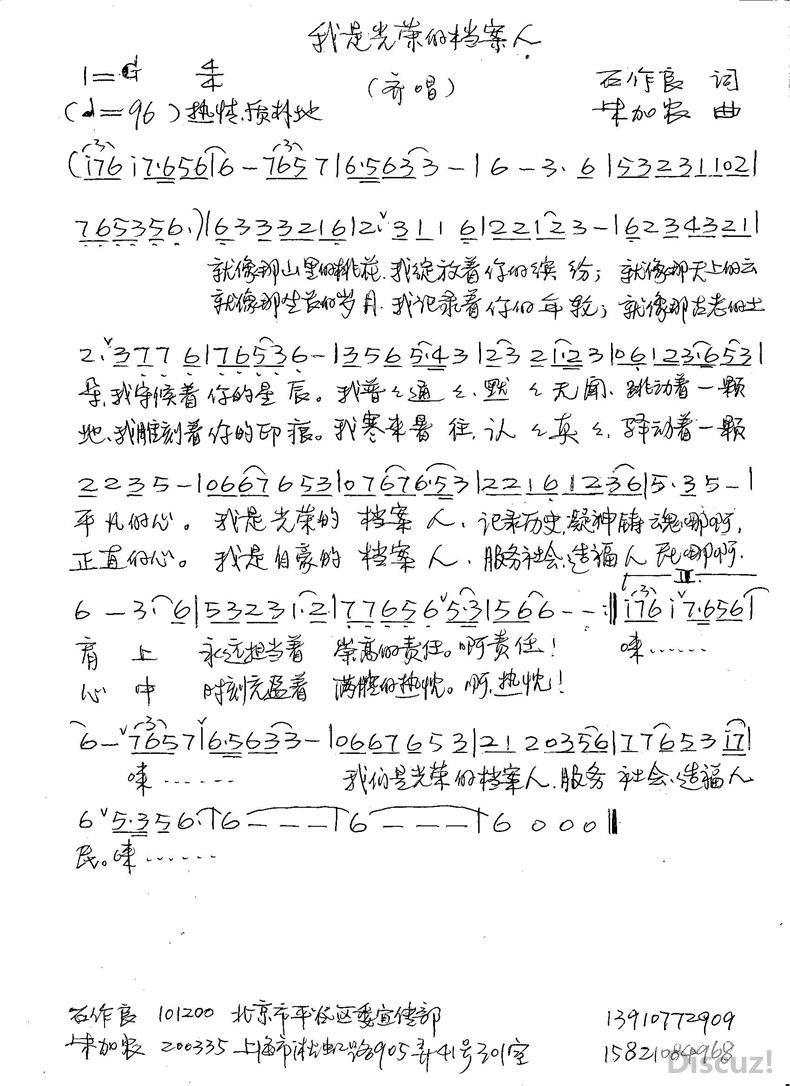 我是光荣的档案人
1=G 4/4 (齐唱) 石作良 词
(♩=96)热情、质朴地 加农 曲
(i76 i7·656|6 - 7657|6·5633 - |6 - 3· 6|53231102|
765356·)|63332216|2·ˇ311 6|221223 - |62343321|
就像那山里的桃花,我绽放着你的缤纷;就像那天上的云
就像那生命的岁月,我记录着你的年轮;就像那古老的土
2·ˇ377 6|76536 - |3565 5·43|23 21·23|061 23·653|
朵,我守候着你的星辰。我普ㄑ通ㄑ,默ㄑ无闻,跳动着一颗
地,我雕刻着你的印痕。我寒来暑往,认ㄑ真ㄑ,驿动着一颗
2235 - |0667653|0767653|221612 36|5·35 - |
平凡的心。我是光荣的档案人,记录历史,凝神铸魂哪啊,
正直的心。我是自豪的档案人,服务社会,造福人民哪啊.
II.
6 - 3· 6|53231·2|77656ˇ5·3|566 - - :‖i76 iˇ7·656|
肩上 永远担当着 崇高的责任。啊责任! 唻……
心中 时刻充盈着 满腔的热忱。啊,热忱!
6 - ˇ7657|ˇ6·5633 - |0667653|21 20356|77653 i7|
唻…… 我们是光荣的档案人,服务社会,造福人
6 ˇ5·356·|6 - - - |6 - - - |6 0 0 0‖
民。唻……
石作良 101200 北京市平谷区委宣传部 13910772909
加农 200335 上海市淞虹路905弄41号301室 15821084968
Discuz!